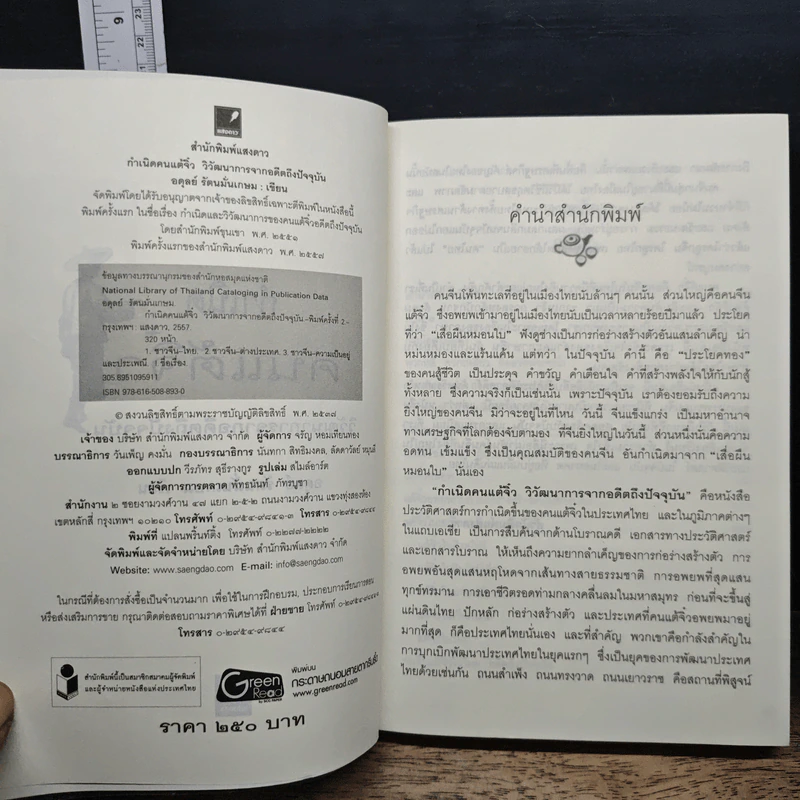 9
23
22
21
แสงดาว
สำนักพิมพ์แสงดาว
กำเนิดคนแต้จิ๋ว วิวัฒนาการจากอดีตถึงปัจจุบัน
อดุลย์ รัตนมั่นเกษม : เขียน
จัดพิมพ์โดยได้รับอนุญาตจากเจ้าของลิขสิทธิ์เฉพาะตีพิมพ์ในหนังสือนี้
พิมพ์ครั้งแรก ในชื่อเรื่อง กำเนิดและวิวัฒนาการของคนแต้จิ๋วอดีตถึงปัจจุบัน
โดยสำนักพิมพ์ขุนเขา พ.ศ. ๒๕๕๑
พิมพ์ครั้งแรกของสำนักพิมพ์แสงดาว พ.ศ. ๒๕๕๗
ข้อมูลทางบรรณานุกรมของสำนักหอสมุดแห่งชาติ
National Library of Thailand Cataloging in Publication Data
อดุลย์ รัตนมั่นเกษม.
กำเนิดคนแต้จิ๋ว วิวัฒนาการจากอดีตถึงปัจจุบัน-พิมพ์ครั้งที่ 2-
กรุงเทพฯ: แสงดาว, 2557
320 หน้า
1. ชาวจีน-ไทย. 2. ชาวจีน-ต่างประเทศ. 3. ชาวจีน-ความเป็นอยู่
และประเพณี. I ชื่อเรื่อง.
305.8951095911
ISBN 978-616-508-893-0
© สงวนลิขสิทธิ์ตามพระราชบัญญัติลิขสิทธิ์ พ.ศ. ๒๕๓๗
เจ้าของ บริษัท สำนักพิมพ์แสงดาว จำกัด ผู้จัดการ จรัญ หอมเทียนทอง
บรรณาธิการ วันเพ็ญ คงมั่น กองบรรณาธิการ นันทกา สิทธิมงคล, ลัดดาวัลย์ หมุนดี
ออกแบบปก วีรภัทร สุธีรางกูร รูปเล่ม สไมล์อาร์ต
ผู้จัดการการตลาด พัทธนันท์ ภัทรบูชา
สำนักงาน ๒ ซอยงามวงศ์วาน ๔๗ แยก ๒-๕-๒ ถนนงามวงศ์วาน แขวงทุ่งสองห้อง
เขตหลักสี่ กรุงเทพฯ ๑๐๒๑๐ โทรศัพท์ ๐-๒๙๕๔-๙๘๔๑-๓ โทรสาร ๐-๒๙๕๔-๙๘๔๔
พิมพ์ที่ แปลนพริ้นท์ติ้ง โทรศัพท์ ๐-๒๒๗๗-๒๒๒๒
จัดพิมพ์และจัดจำหน่ายโดย บริษัท สำนักพิมพ์แสงดาว จำกัด
Website: www.saengdao.com E-mail: info@saengdao.com
ในกรณีที่ต้องการสั่งซื้อเป็นจำนวนมาก เพื่อใช้ในการฝึกอบรม, ประกอบการเรียนการสอน
หรือส่งเสริมการขาย กรุณาติดต่อสอบถามราคาพิเศษได้ที่ ฝ่ายขาย โทรศัพท์ ๐-๒๙๕๔-๙๘๔๓
โทรสาร ๐-๒๙๕๔-๙๘๔๔
สำนักพิมพ์นี้เป็นสมาชิกสมาคมผู้จัดพิมพ์
และผู้จำหน่ายหนังสือแห่งประเทศไทย
Green
Read
พิมพ์บน
กระดาษถนอมสายตากรีนรี้ด
www.greenread.com
ราคา ๒๕๐ บาท
คำนำสำนักพิมพ์
คนจีนโพ้นทะเลที่อยู่ในเมืองไทยนับล้านๆ คนนั้น ส่วนใหญ่คือคนจีน
แต้จิ๋ว ซึ่งอพยพเข้ามาอยู่ในเมืองไทยนับเป็นเวลาหลายร้อยปีมาแล้ว ประโยค
ที่ว่า “เสื่อผืนหมอนใบ” ฟังดูช่างเป็นการก่อร่างสร้างตัวอันแสนลำเค็ญ น่า
หม่นหมองและแร้นแค้น แต่ทว่า ในปัจจุบัน คำนี้ คือ “ประโยคทอง”
ของคนสู้ชีวิต เป็นประดุจ คำขวัญ คำเตือนใจ คำที่สร้างพลังใจให้กับนักสู้
ทั้งหลาย ซึ่งความจริงก็เป็นเช่นนั้น เพราะปัจจุบัน เราต้องยอมรับถึงความ
ยิ่งใหญ่ของคนจีน มิว่าจะอยู่ในที่ไหน วันนี้ จีนแข็งแกร่ง เป็นมหาอำนาจ
ทางเศรษฐกิจที่โลกต้องจับตามอง ที่จีนยิ่งใหญ่ในวันนี้ ส่วนหนึ่งนั่นคือความ
อดทน เข้มแข็ง ซึ่งเป็นคุณสมบัติของคนจีน อันกำเนิดมาจาก “เสื่อผืน
หมอนใบ” นั่นเอง
“กำเนิดคนแต้จิ๋ว วิวัฒนาการจากอดีตถึงปัจจุบัน” คือหนังสือ
ประวัติศาสตร์การกำเนิดขึ้นของคนแต้จิ๋วในประเทศไทย และในภูมิภาคต่างๆ
ในแถบเอเชีย เป็นการสืบค้นจากด้านโบราณคดี เอกสารทางประวัติศาสตร์
และเอกสารโบราณ ให้เห็นถึงความยากลำเค็ญของการก่อร่างสร้างตัว การ
อพยพอันสุดแสนหฤโหดจากเส้นทางสายธรรมชาติ การอพยพที่สุดแสน
ทุกข์ทรมาน การเอาชีวิตรอดท่ามกลางคลื่นลมในมหาสมุทร ก่อนที่จะขึ้นสู่
แผ่นดินไทย ปักหลัก ก่อร่างสร้างตัว และประเทศที่คนแต้จิ๋วอพยพมาอยู่
มากที่สุด ก็คือประเทศไทยนั่นเอง และที่สำคัญ พวกเขาคือกำลังสำคัญใน
การบุกเบิกพัฒนาประเทศไทยในยุคแรกๆ ซึ่งเป็นยุคของการพัฒนาประเทศ
ไทยด้วยเช่นกัน ถนนสำเพ็ง ถนนทรงวาด ถนนเยาวราช คือสถานที่พิสูจน์